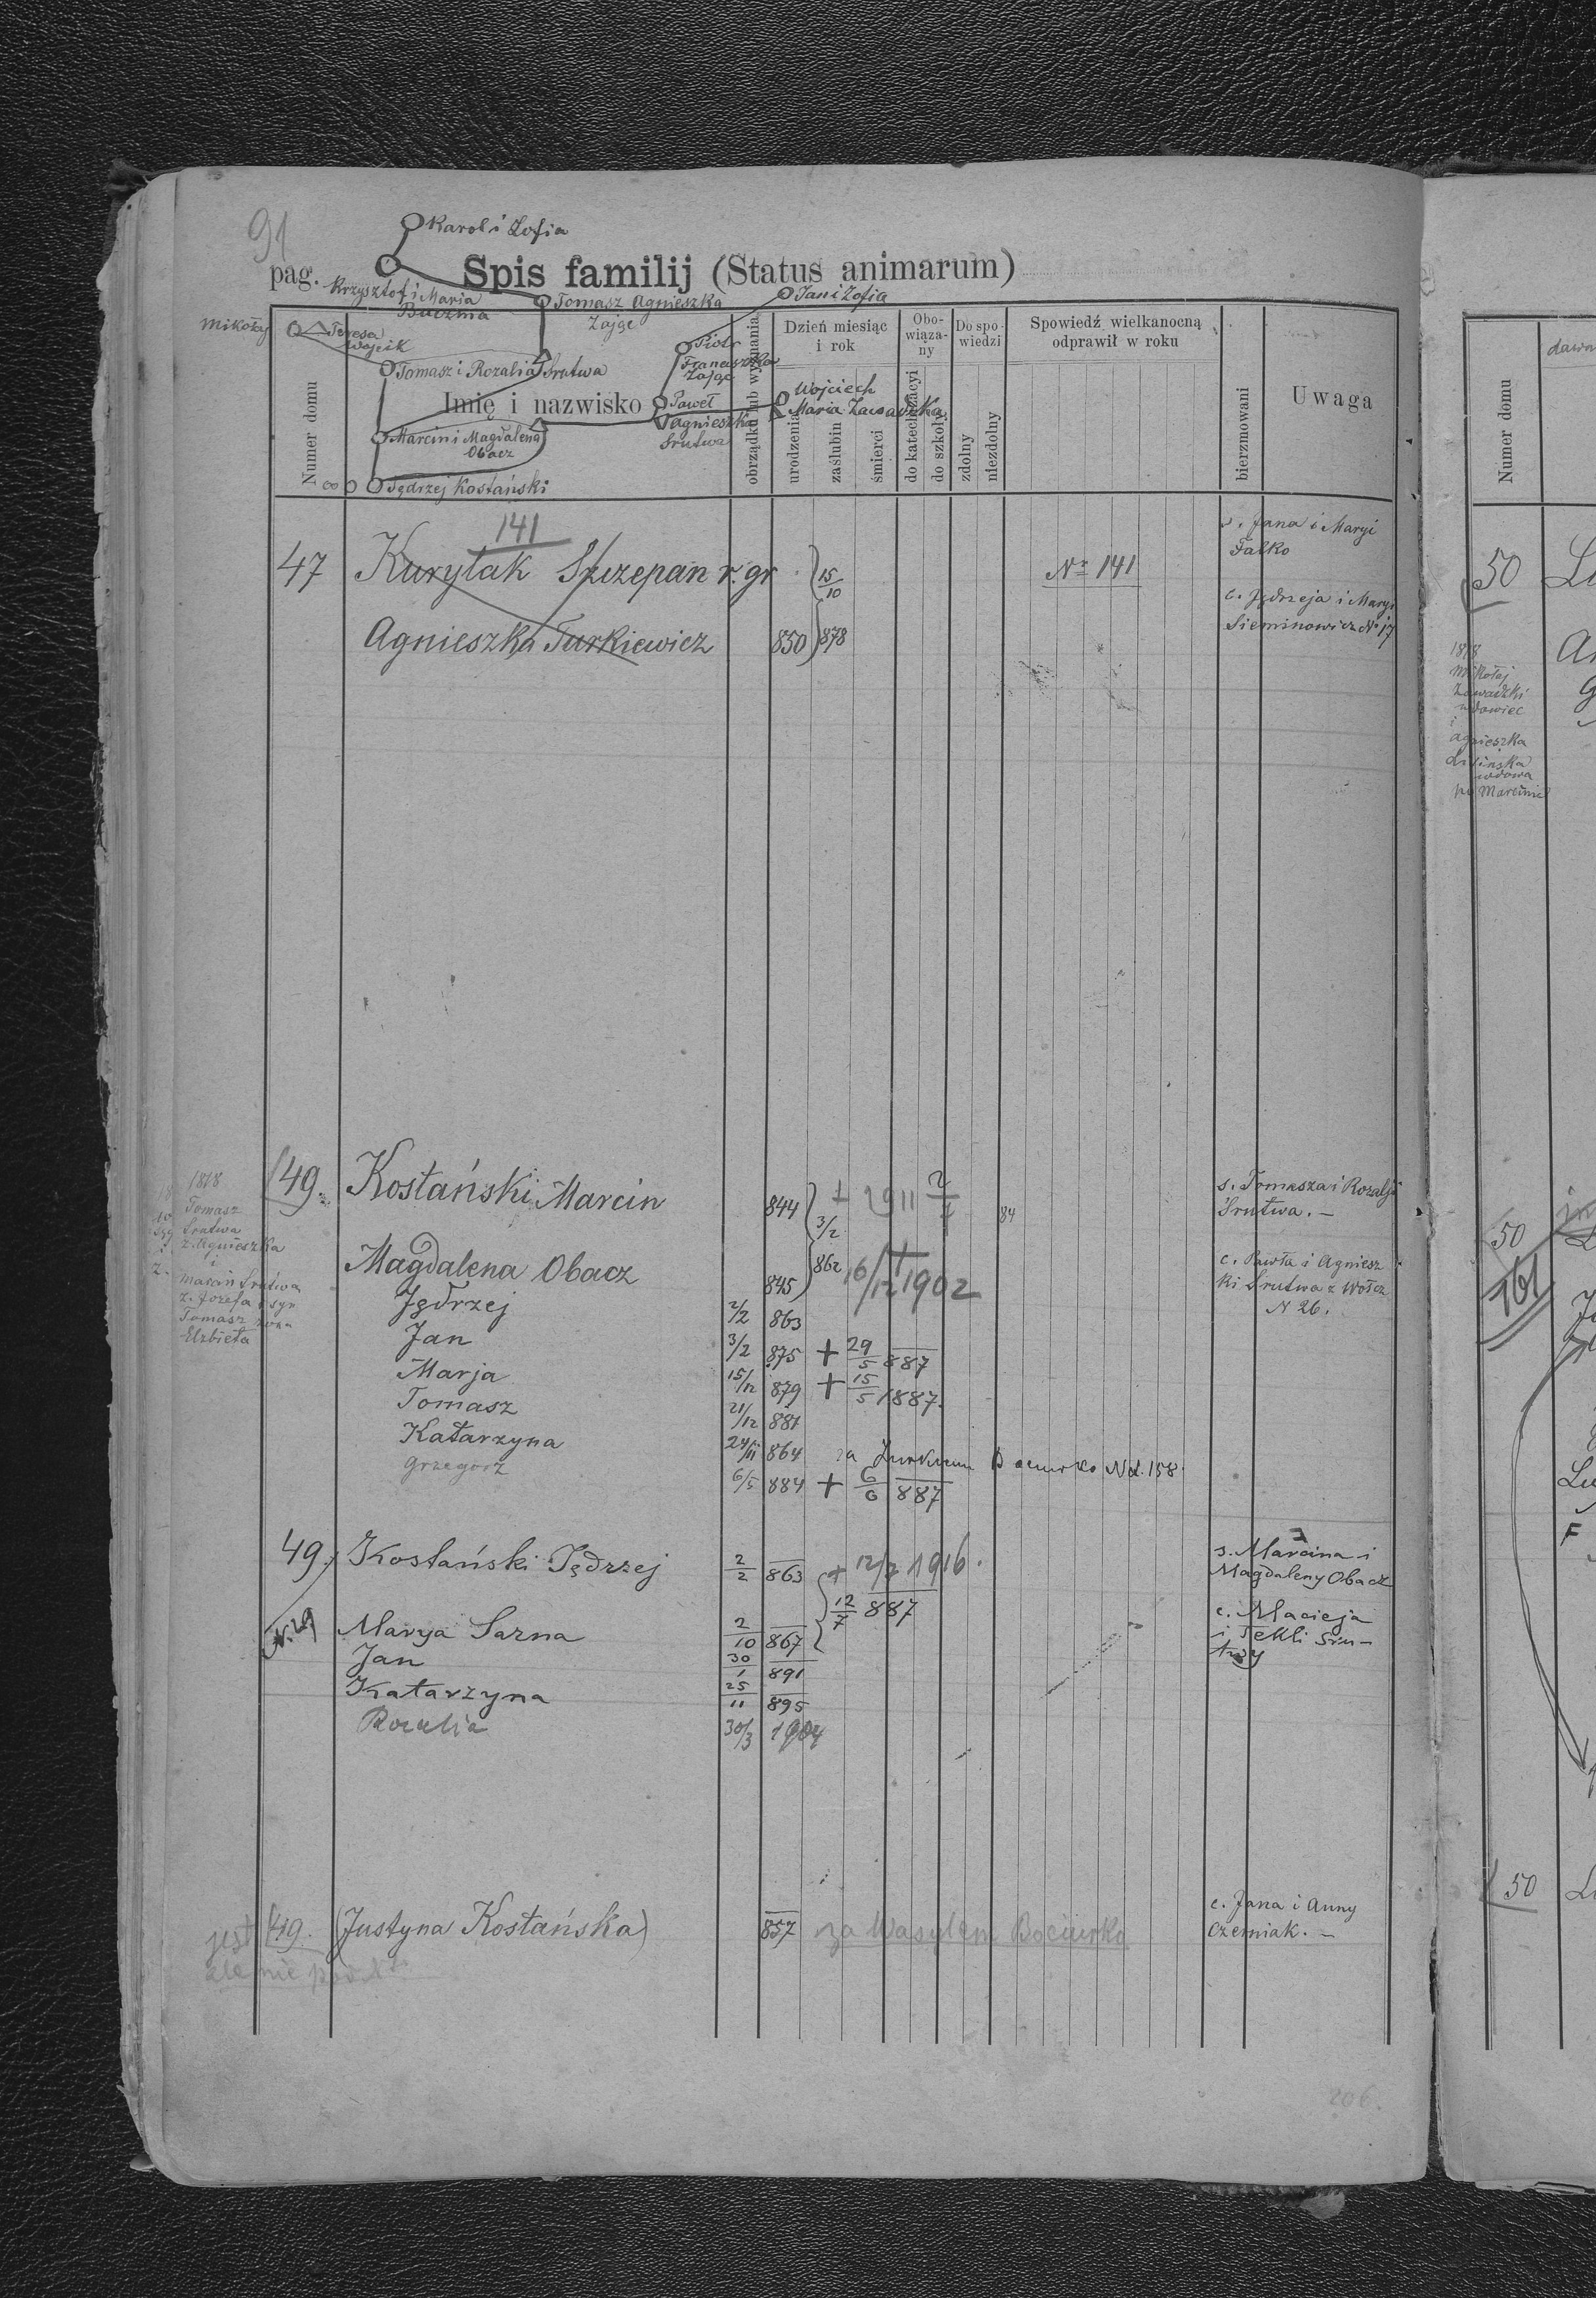 91
Karol i Zofia
pag.
Spis familij (Status animarum)
Krzysztof i Maria
Buczma
Tomasz Agnieszka
Zając
Jan i Zofia
Mikołaj
Teresa
Wojcik
Piotr
Franciszka
Zając
Tomasz i Rozalia Srutwa
Wojciech
Maria Zawadzka
Paweł
Agnieszka
Srutwa
Marcin i Magdalena
Obacz
Jędrzej Kostański
Numer domu
Imię i nazwisko
obrządku lub wyznania
Dzień miesiąc
i rok
urodzenia
zaślubin
śmierci
Obo-
wiąza-
ny
do katechizacyi
do szkoły
Do spo-
wiedzi
zdolny
niezdolny
Spowiedź wielkanocną
odprawił w roku
bierzmowani
Uwaga
141
47 Kurylak Szczepan r. gr 15/10 Nr 141
s. Jana i Maryi
Falko
Agnieszka Turkiewicz 850 878
c. Jędrzeja i Maryi
Sieminowicz No 17
1818
Tomasz
Srutwa
z. Agnieszka
i
Marcin Srutwa
z. Jozefa i syn
Tomasz żona
Elzbieta
49. Kostański Marcin 844 3/2 + 1911 2/7 84
s. Tomasza i Rozalji
Srutwa. –
Magdalena Obacz 845 862 16/12 + 1902
c. Pawła i Agniesz
ki Srutwa z Wołcz
N 26.
Jędrzej 2/2 863
Jan 3/2 875 + 29/5 887
Marja 15/12 879 + 15/5 1887.
Tomasz 21/12 881
Katarzyna 24/11 864 za N d. 158.
Grzegorz 6/5 884 + 6/6 887
49. Kostański Jędrzej 2/2 863 + 12/7 1916.
12/7 887
s. Marcina i
Magdaleny Obacz
N. 29 Marya Sarna 2/10 867
c. Macieja
i Tekli Sru-
twy
Jan 30/1 891
Katarzyna 25/11 895
Rozalia 30/3 1904
49. (Justyna Kostańska) 857 za Wasylem Bociurko
c. Jana i Anny
Czerniak. –
jest
ale nie pod N
206.
Numer domu
dawn
50
1818
Mikołaj
Zawadzki
wdowiec
i
Agnieszka
wdowa
po Marcinie
50
161
50